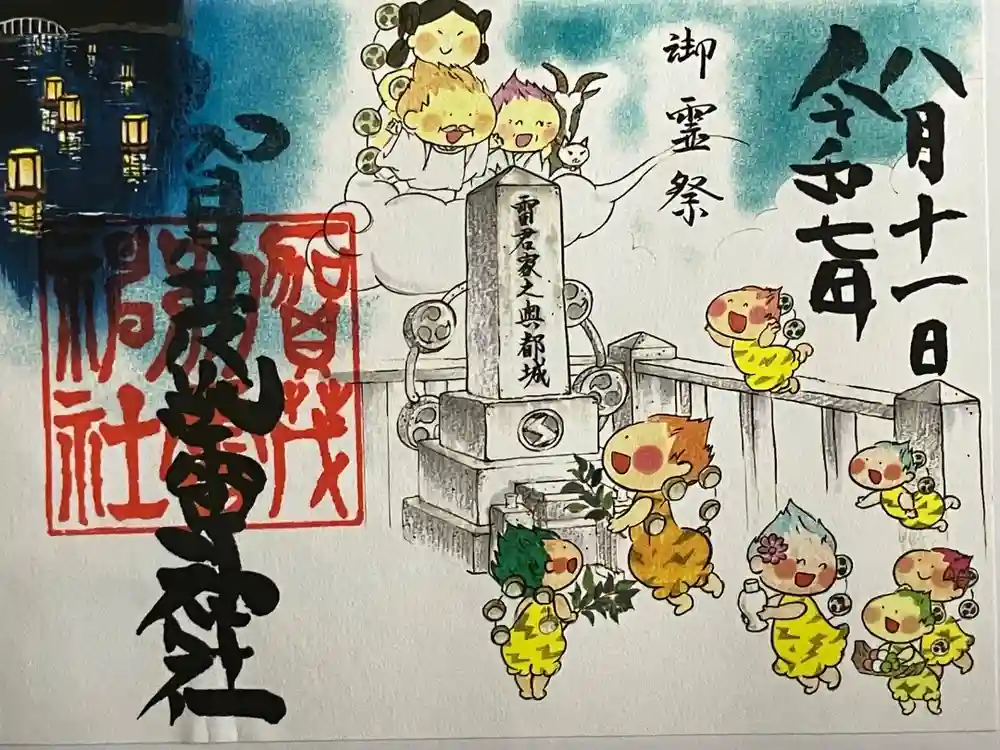 八月十一日
令和七年
御霊祭
雷君家之奥都城
賀茂別雷神社
賀茂
別雷
神社